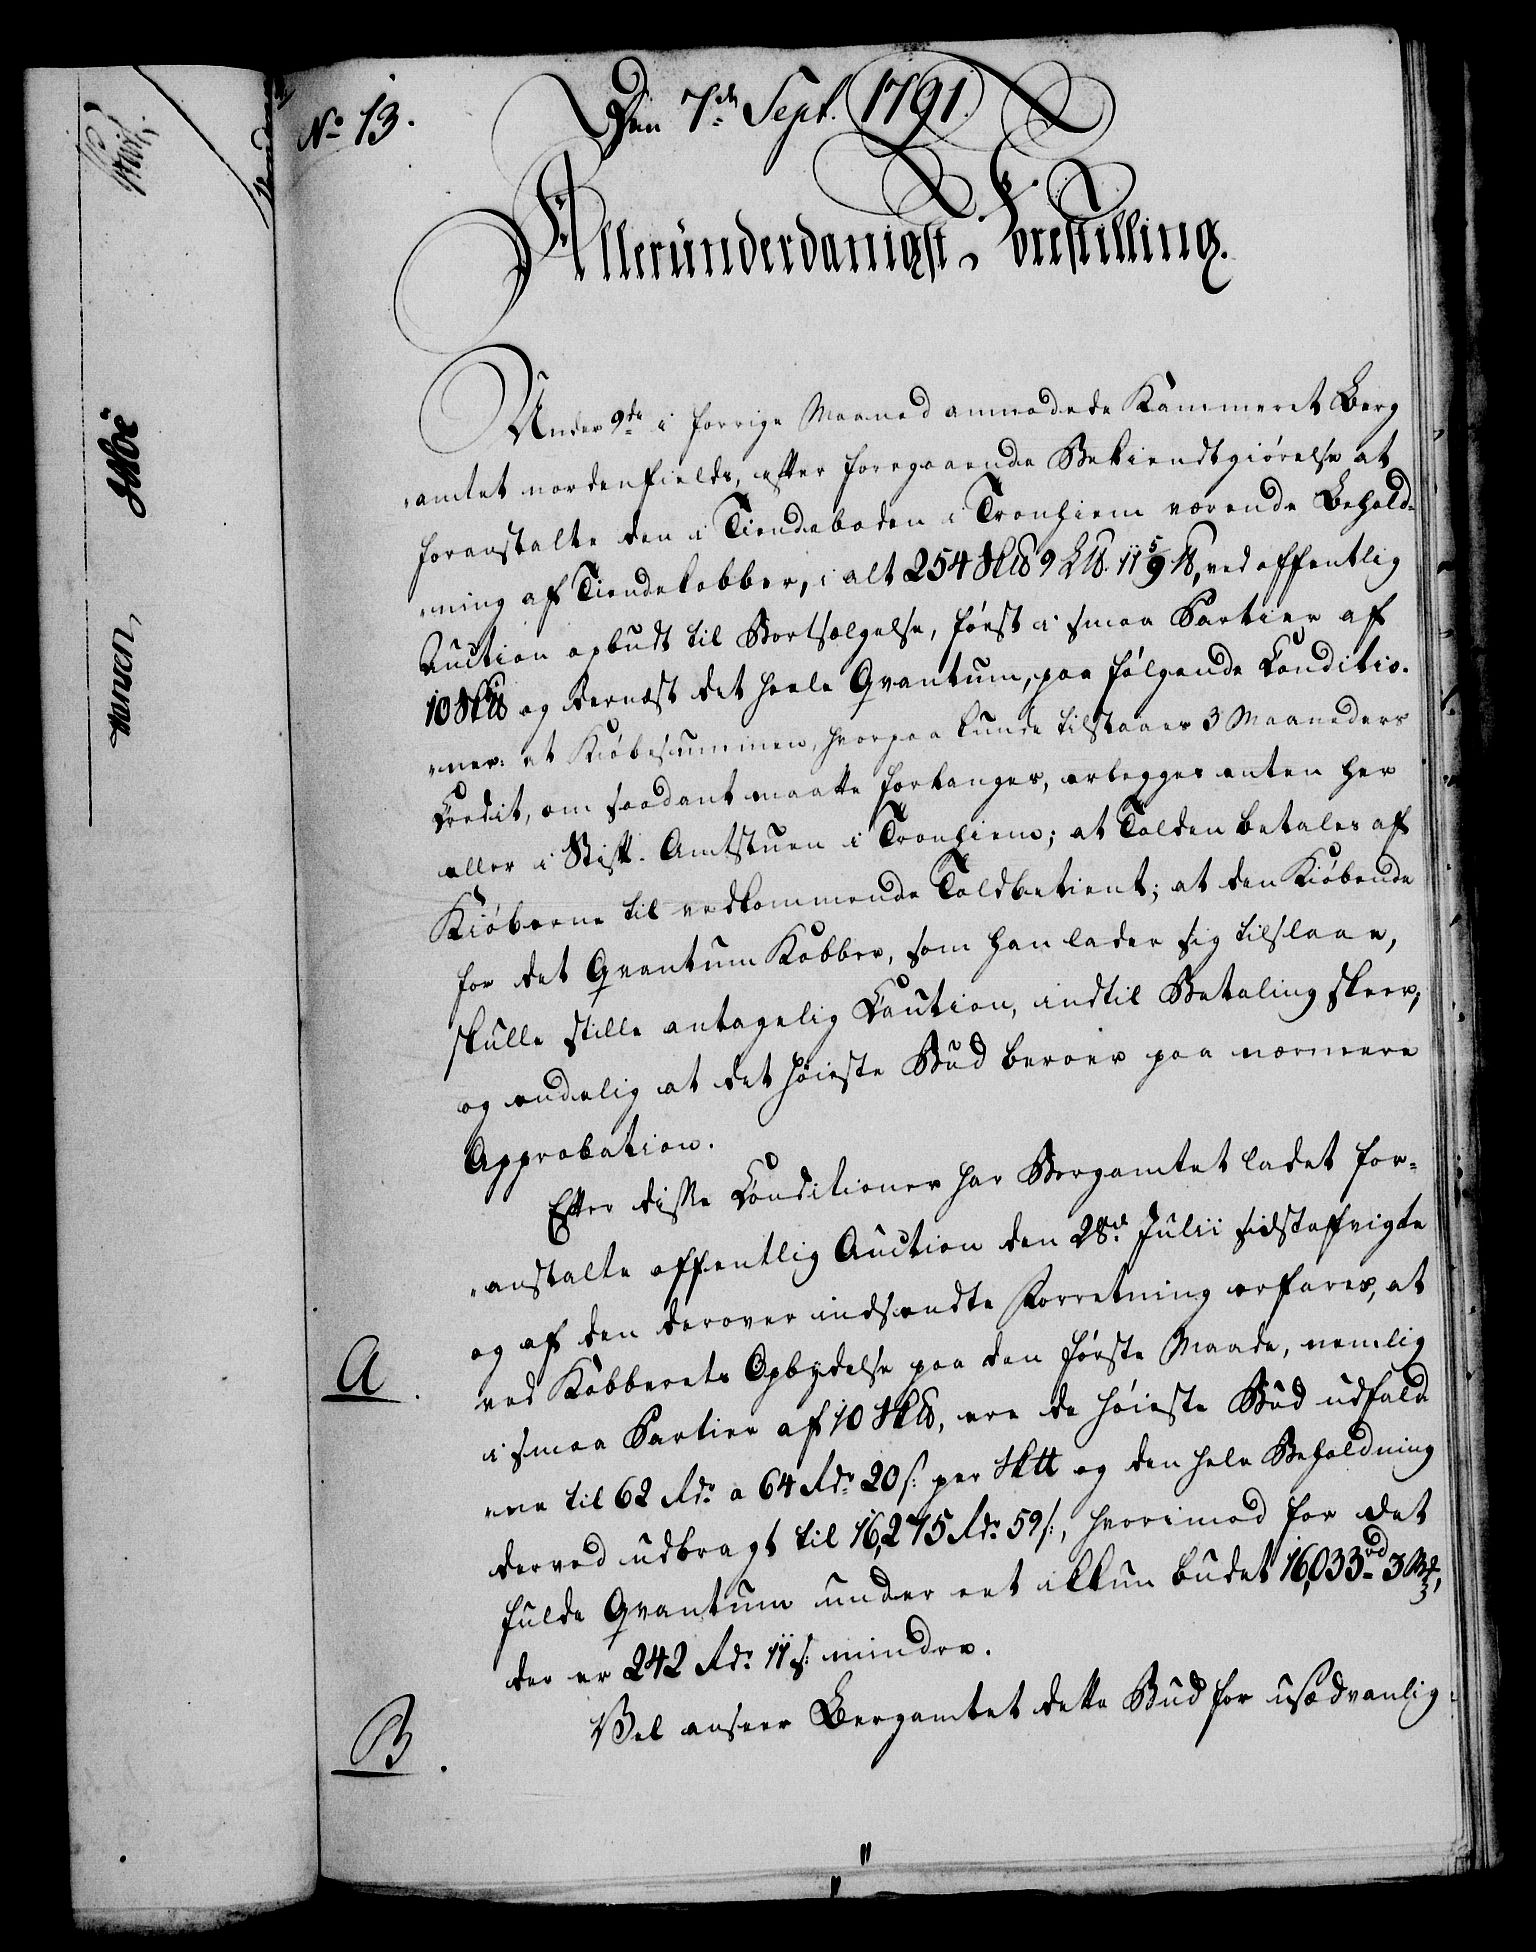 No 13.
Den 7de Sept. 1791.
Allerunderdanigst Forestilling.
Under 9de i forrige Maaned anmodede Kammeret Berg
-amtet nordenfields, efter foregaaende Bekiendtgiørelse at
foranstalte den i Tiendeboden i Tronhiem værende Behold-
-ning af Tiendekobber, i alt 254 Sk℔ 9 L℔. 11 5/9 ℔, ved offentlig
Auction opbudt til Bortsælgelse, først i smaa Partier af
10 Sk℔ og dernæst det heele Qvantum, paa følgende Conditio-
-ner: at Kiøbesummen, hvorpaa kunde tilstaaes 3 Maaneders
Credit, om saadant maatte forlanges, erlegges enten her
eller i Stift-Amtstuen i Tronhiem; at Tolden betales af
Kiøberne til vedkommende Toldbetient; at den Kiøbende
for det Qvantum Kobber, som han lader sig tilslaae,
skulle stille antagelig Caution, indtil Betaling skeer,
og endelig at det høieste Bud beroer paa nærmere
Approbation.
Efter disse Conditioner har Bergamtet ladet for-
-anstalte offentlig Auction den 28de Julii sidstafvigte
og af den derover indsendte Forretning erfares, at
A.
ved Kobberets Opbydelse paa den første Maade, nemlig
i smaa Partier af 10 Sk℔, ere de høieste Bud udfald
-ne til 62 Rdr. a 64 Rdr. 20 s: per Sk℔ og den hele Beholdning
derved udbragt til 16,275 Rdr. 59 s:, hvorimod for det
fulde Qvantum under eet ikkun budet 16,033 rd 3 Mk,
der er 242 Rdr. 11 s: mindre.
B.
Vel anseer Bergamtet dette Bud for usædvanlig